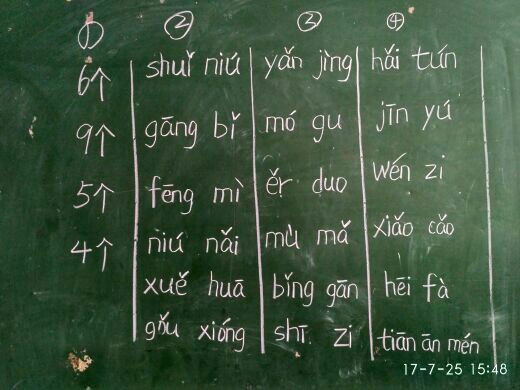 ① ② ③ ④
6个 shuǐ niú yǎn jìng hǎi tún
9个 gāng bǐ mó gu jīn yú
5个 fēng mì ěr duo wén zi
4个 niú nǎi mù mǎ xiǎo cǎo
xuě huā bǐng gān hēi fà
gǒu xióng shī zi tiān ān mén
17-7-25 15:48